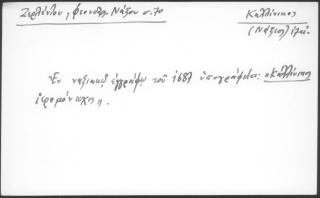 Ζερλέντου, Φεουδαλ. Νάξου σ. 70
Καλλίνικος
(Νάξιος) ἱερ.
Ἐν ναξιακῷ ἐγγράφῳ τοῦ 1687 ὑπογράφεται: «Καλλίνικος
ἱερομόναχος».